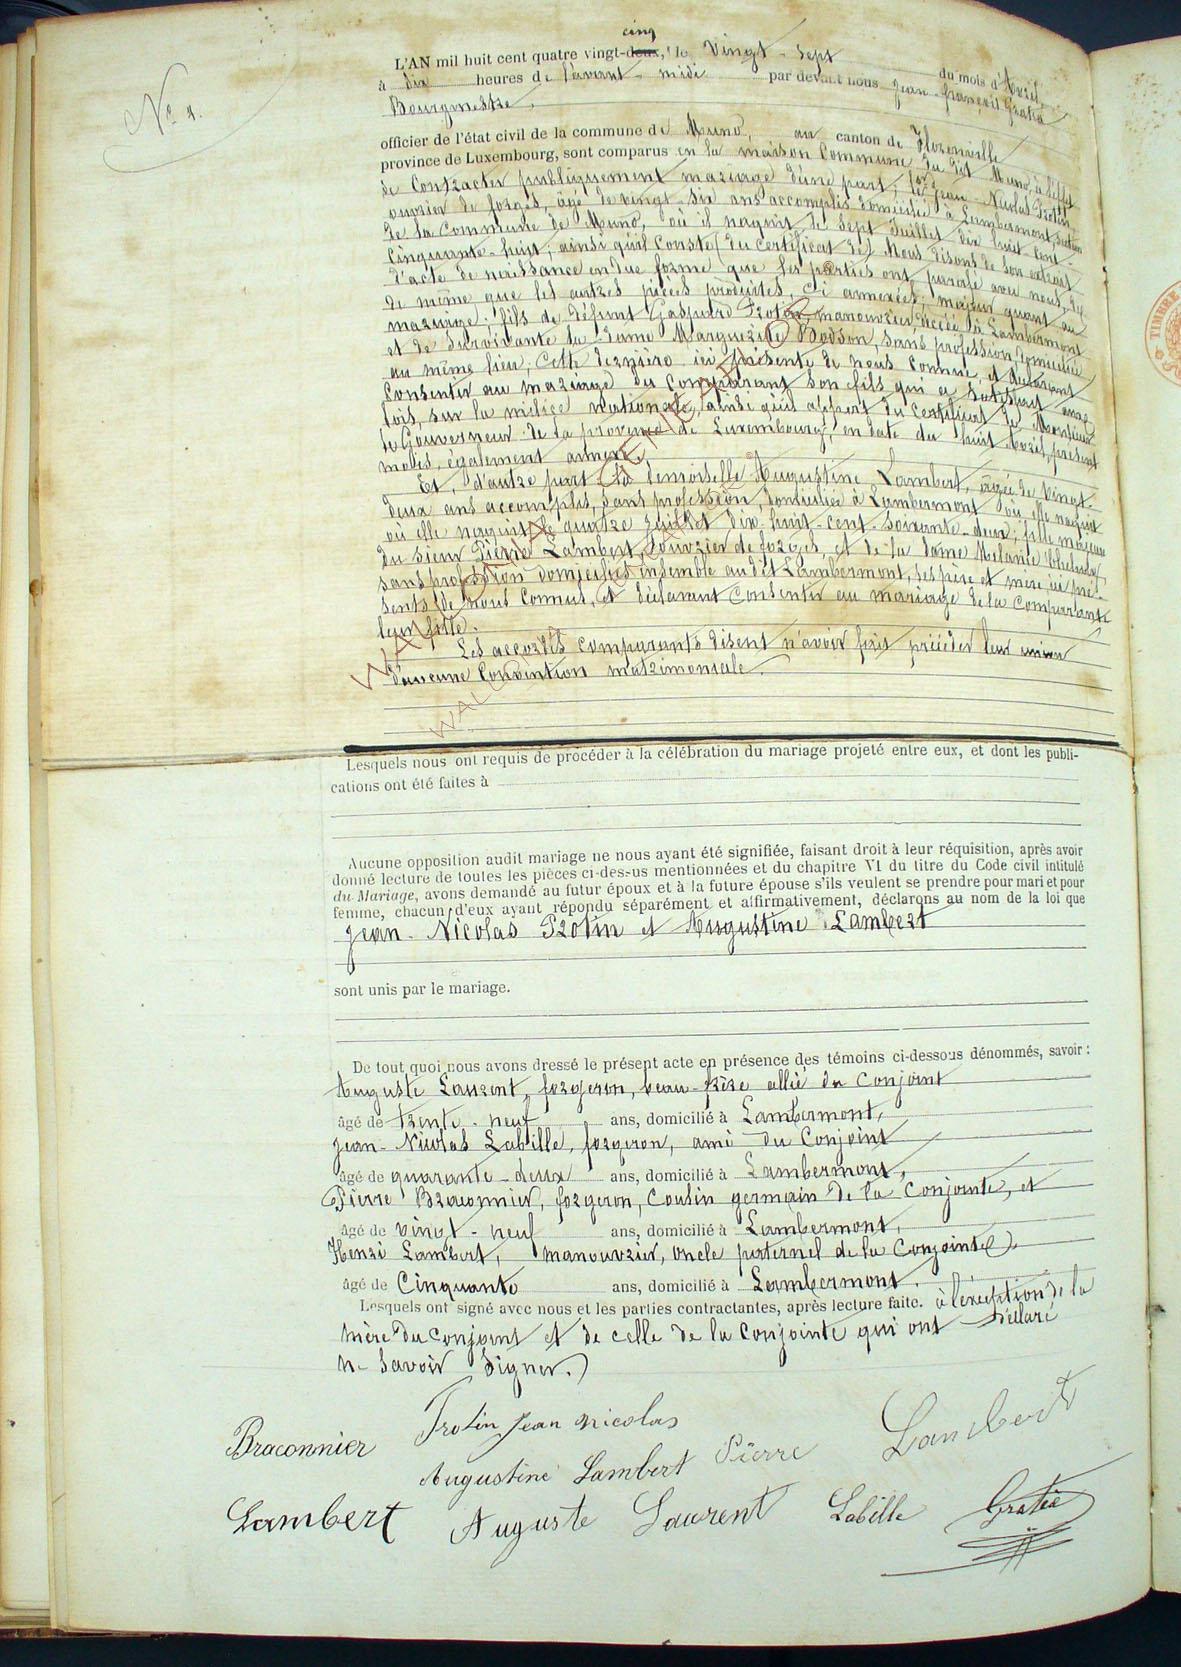 N° 4.
cinq
L'AN mil huit cent quatre vingt-deux, le Vingt-Sept du mois d'Avril,
à dix heures de l'avant-midi par devant nous Jean-François Gratia
Bourgmestre,
officier de l'état civil de la commune de Muno, au canton de Florenville
province de Luxembourg, sont comparus en la maison Commune du dit Muno, à l'effet
de Contracter publiquement mariage d'une part, le sr Jean-Nicolas Trotin
ouvrier de forges, âgé de vingt-six ans accomplis domicilié à Lambermont, section
de la Commune de Muno, où il naquit le Sept Juillet dix huit-cent-
cinquante-huit; ainsi qu'il conste (du certificat de) Nous disons de son extrait
d'acte de naissance en due forme que les parties ont paraphé avec nous, de
de même que les autres pièces produites, ci annexées; majeur quant au
mariage; fils de défunt Gaspard Trotin, manouvrier décédé à Lambermont
et de Survivante la Dame Marguerite Bodson, sans profession domiciliée
au même lieu; cette dernière ici présente de nous connue et déclarant
Consentir au mariage du Comparant son fils qui a Satisfait aux
lois, sur la milice nationale, ainsi qu'il appert du certificat de Monsieur
le Gouverneur de la province de Luxembourg, en date du huit Avril, présent
mois, également annexé.
Et, d'autre part la demoiselle Augustine Lambert, âgée de vingt-
deux ans accomplis, sans profession, domiciliée à Lambermont où elle naquit
où elle naquit le quatre Juillet dix-huit-cent-soixante-deux; fille majeure
du sieur Pierre Lambert, ouvrier de forges, et de la dame Mélanie
sans profession domiciliés ensemble au dit Lambermont, ses père et mère, ici pré-
sents de nous Connus, et déclarant Consentir au mariage de la Comparante
leur fille.
Les accordés comparants disent n'avoir fait précéder leur union
d'aucune Convention matrimoniale.
Lesquels nous ont requis de procéder à la célébration du mariage projeté entre eux, et dont les publi-
cations ont été faites à
Aucune opposition audit mariage ne nous ayant été signifiée, faisant droit à leur réquisition, après avoir
donné lecture de toutes les pièces ci-dessus mentionnées et du chapitre VI du titre du Code civil intitulé
du Mariage, avons demandé au futur époux et à la future épouse s'ils veulent se prendre pour mari et pour
femme, chacun d'eux ayant répondu séparément et affirmativement, déclarons au nom de la loi que
Jean-Nicolas Trotin et Augustine Lambert
sont unis par le mariage.
De tout quoi nous avons dressé le présent acte en présence des témoins ci-dessous dénommés, savoir:
Auguste Laurent, forgeron, beau-frère allié du Conjoint
âgé de trente-neuf ans, domicilié à Lambermont,
Jean-Nicolas Labille, forgeron, ami du Conjoint
âgé de quarante-deux ans, domicilié à Lambermont,
Pierre Braconnier, forgeron, Cousin germain de la Conjointe, et
âgé de vingt-neuf ans, domicilié à Lambermont,
Henri Lambert, manouvrier, oncle paternel de la Conjointe),
âgé de Cinquante ans, domicilié à Lambermont.
Lesquels ont signé avec nous et les parties contractantes, après lecture faite. à l'exception de la
mère du conjoint et de celle de la conjointe qui ont déclaré
ne Savoir Signer.)
Trotin Jean Nicolas
Braconnier
Lambert
Augustine Lambert Pierre
Lambert Auguste Laurent Labille Gratia
TIMBRE